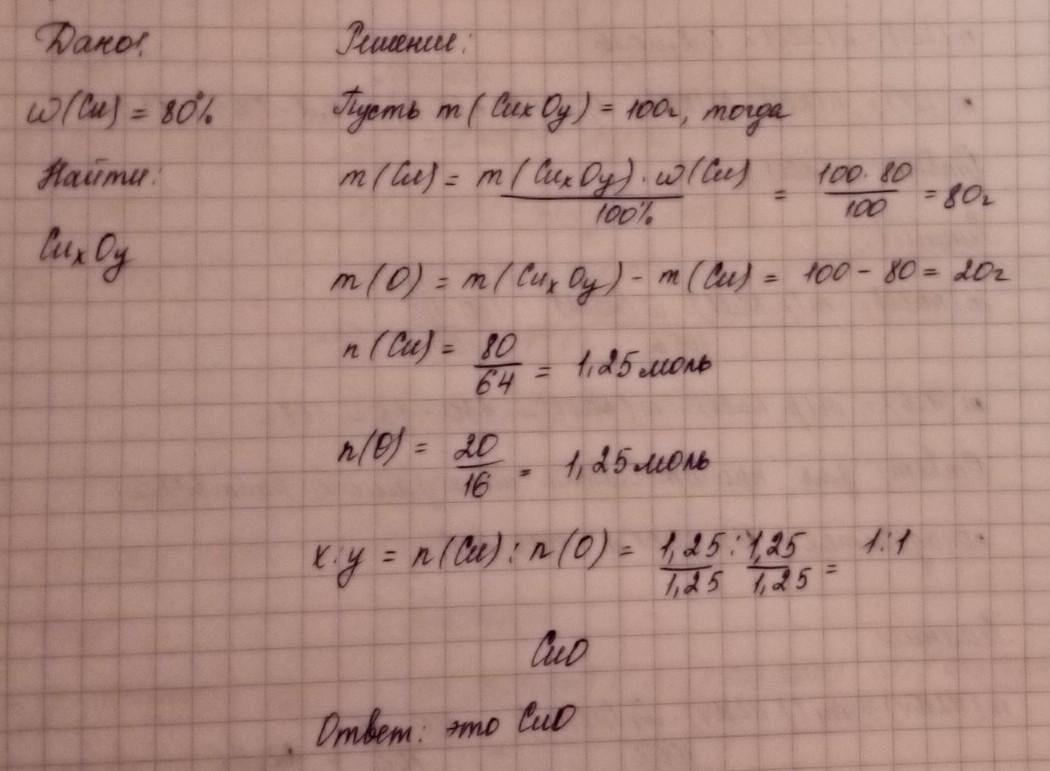 Дано: Решение:
w(Cu) = 80% Пусть m(CuxOy) = 100г, тогда
Найти: m(Cu) = m(CuxOy) · w(Cu) / 100% = 100 · 80 / 100 = 80г
CuxOy
m(O) = m(CuxOy) - m(Cu) = 100 - 80 = 20г
n(Cu) = 80 / 64 = 1,25 моль
n(O) = 20 / 16 = 1,25 моль
x:y = n(Cu) : n(O) = 1,25 / 1,25 : 1,25 / 1,25 = 1:1
CuO
Ответ: это CuO